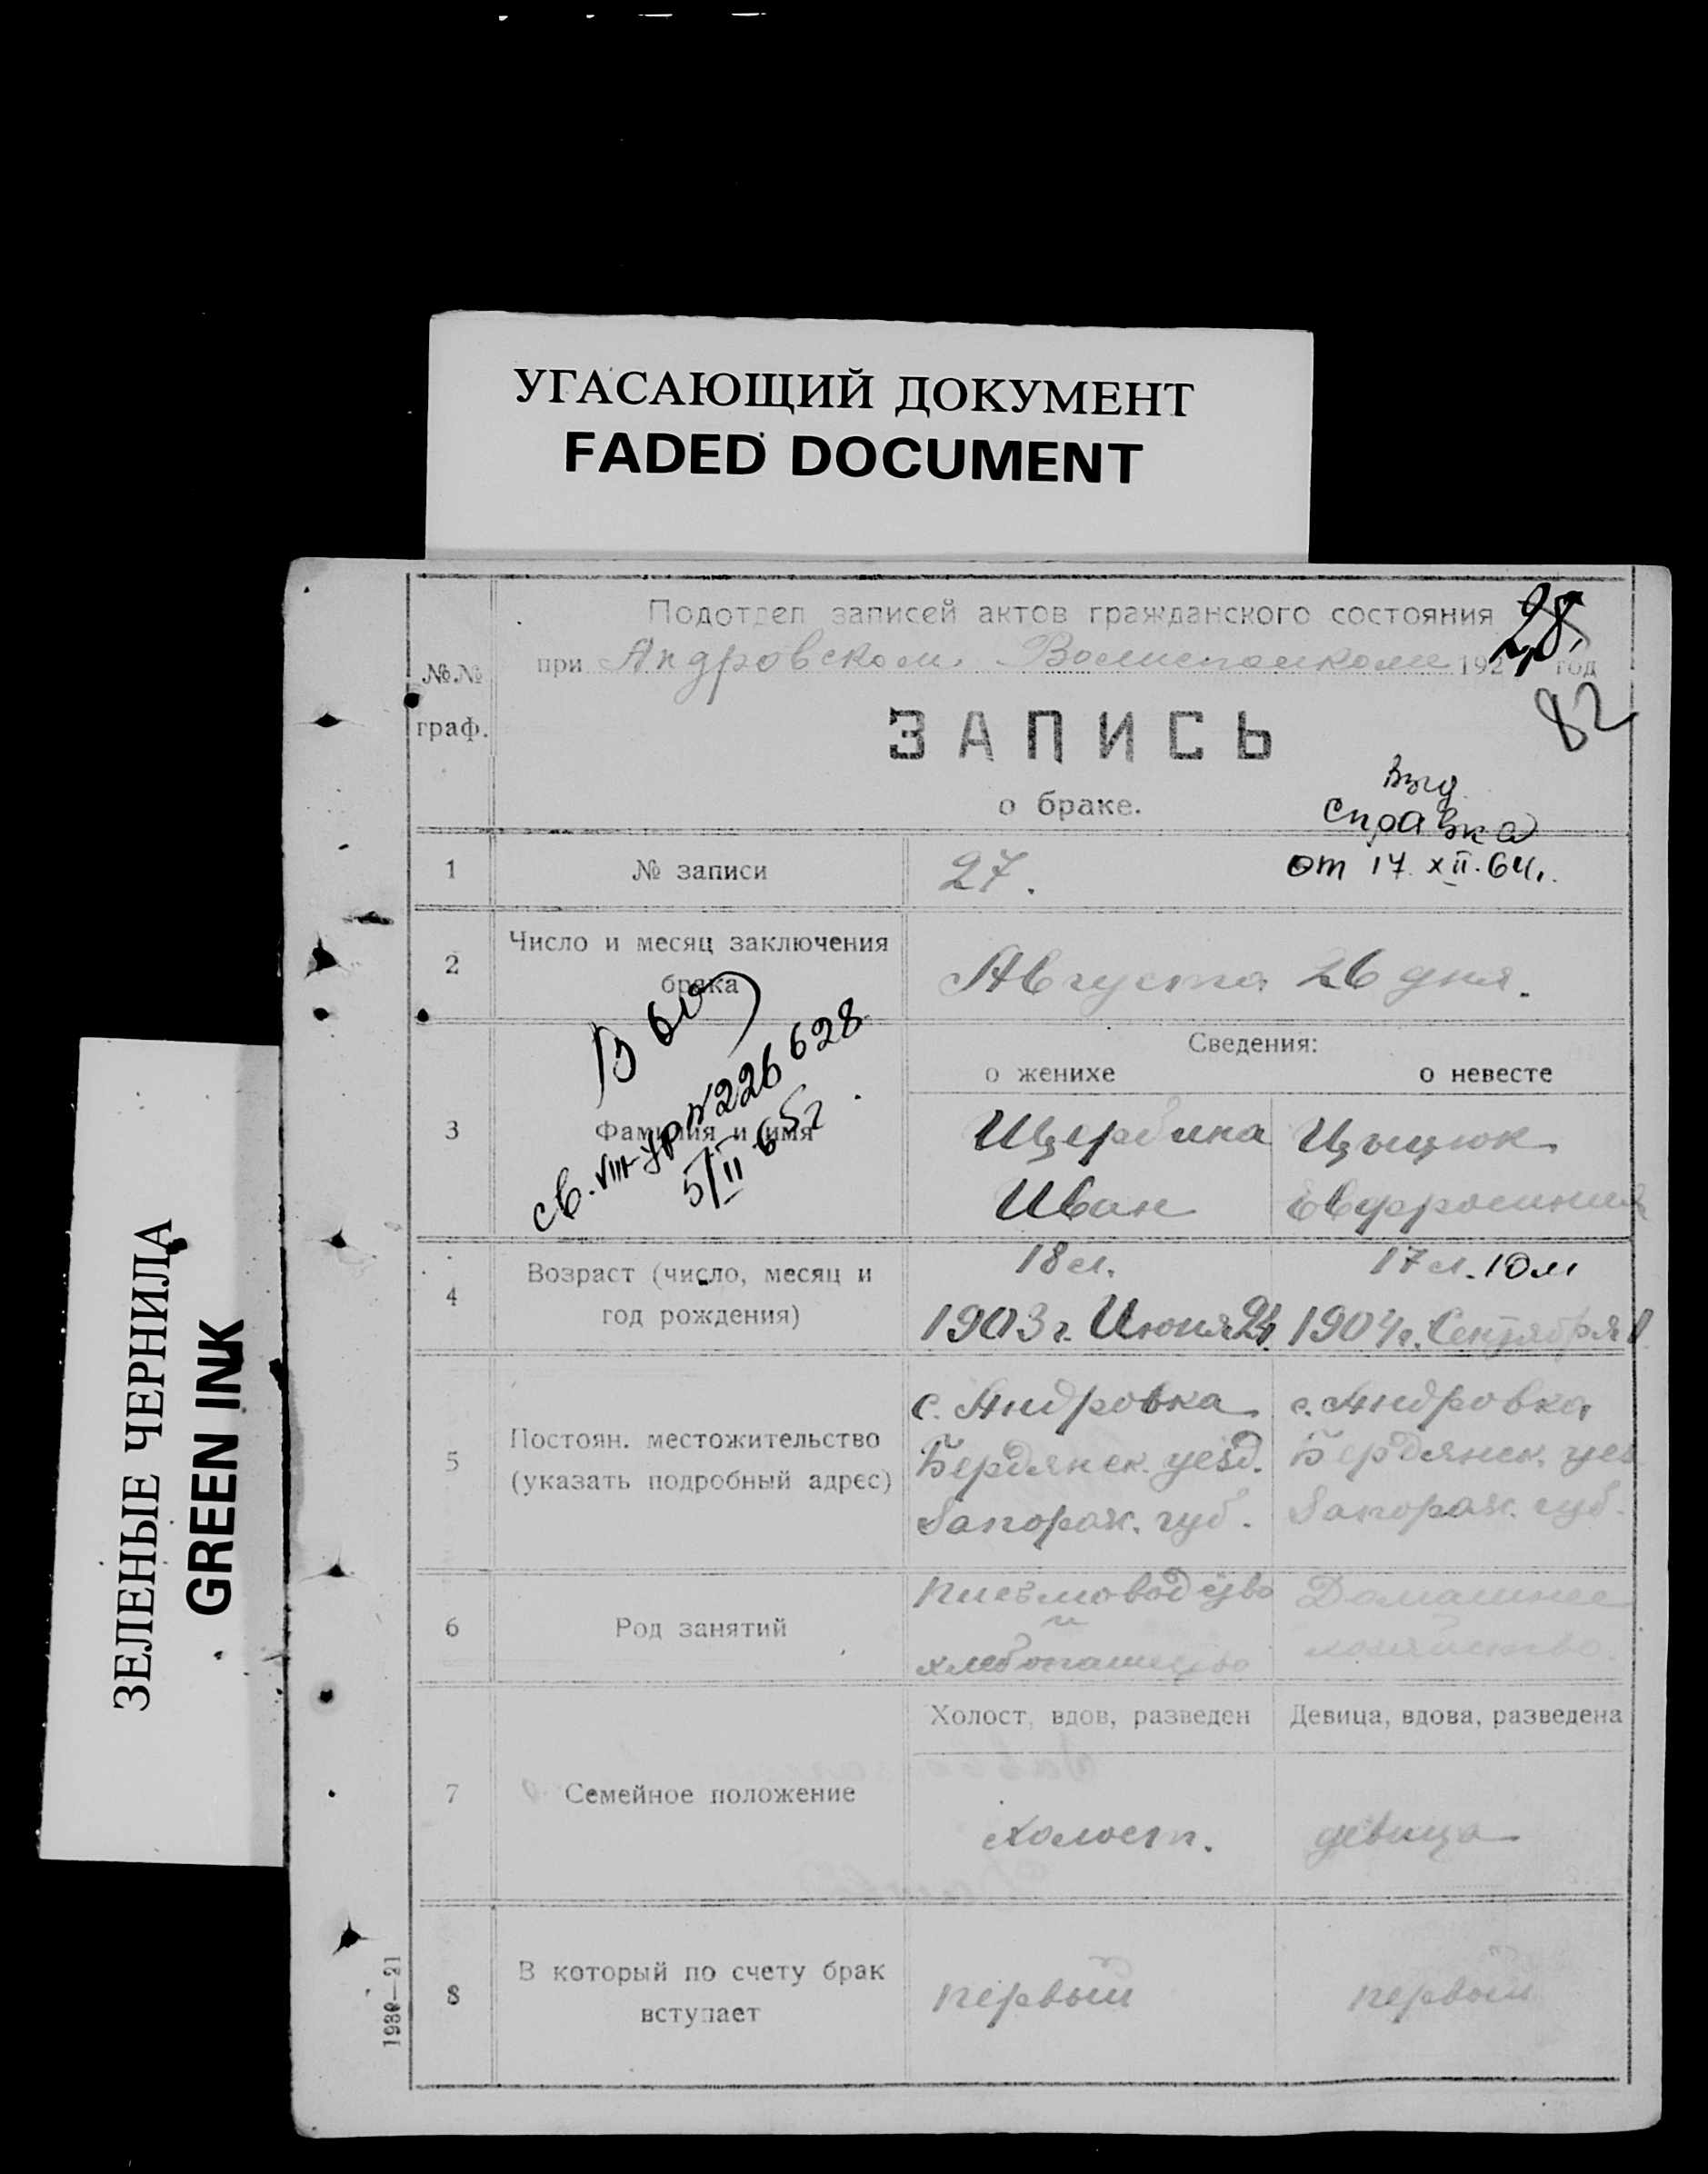 УГАСАЮЩИЙ ДОКУМЕНТ
FADED DOCUMENT
ЗЕЛЕНЫЕ ЧЕРНИЛА
GREEN INK
Подотдел записей актов гражданского состояния
при Андровском Волисполкоме 192 год
28
82
№№
граф.
ЗАПИСЬ
о браке.
Выд.
справка
от 17. XII. 64 г.
1 № записи 27.
2 Число и месяц заключения
брака
Августа 26 дня.
Сведения:
о женихе о невесте
3 Фамилия и имя
Щербина
Иван
Евфросиния
св. VIII-УР № 226628
5/II 65 г.
4 Возраст (число, месяц и
год рождения)
18 л. 17 л. 10 м
1903 г. Июня 24 1904 г. Сентября
5 Постоян. местожительство
(указать подробный адрес)
с. Андровка с. Андровка
Бердянск. уезд. Бердянск. уез
Запорож. губ. Запорож. губ.
6 Род занятий
письмоводство
и
хлебопашество
Домашнее
хозяйство.
Холост, вдов, разведен Девица, вдова, разведена
7 Семейное положение
холост. девица
8 В который по счету брак
вступает
первый первый